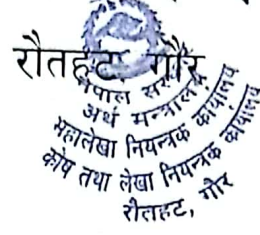 रौतहट गौर
नेपाल सरकार
अर्थ मन्त्रालय
महालेखा नियन्त्रक कार्यालय
कोष तथा लेखा नियन्त्रक कार्यालय
रौतहट, गौर